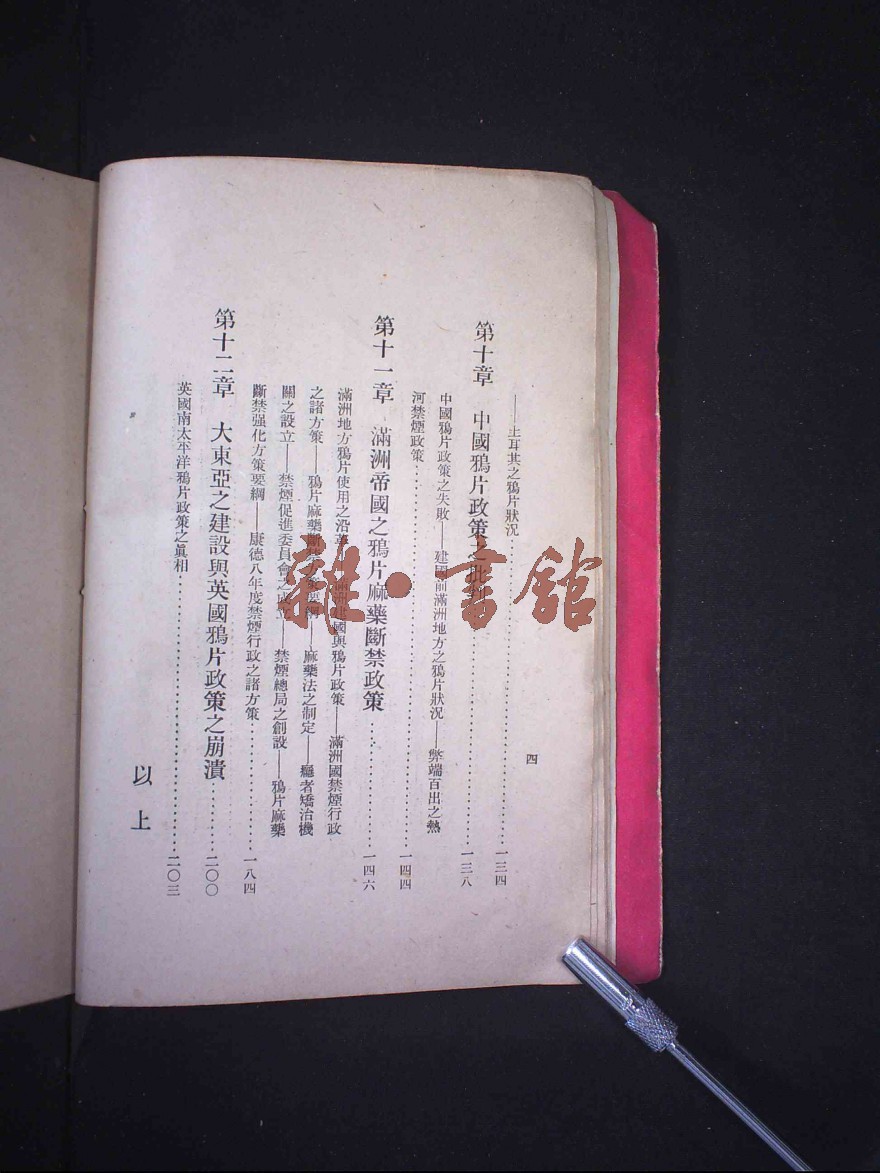 四
——土耳其之鴉片狀況……一三四
第十章　中國鴉片政策之批判……一三八
中國鴉片政策之失敗——建國前滿洲地方之鴉片狀況——弊端百出之熱
河禁煙政策……一四四
第十一章　滿洲帝國之鴉片麻藥斷禁政策……一四六
滿洲地方鴉片使用之沿革——滿洲建國與鴉片政策——滿洲國禁煙行政
之諸方策——鴉片麻藥斷禁方策要綱——麻藥法之制定——癮者矯治機
關之設立——禁煙促進委員會之成立——禁煙總局之創設——鴉片麻藥
斷禁强化方策要綱——康德八年度禁煙行政之諸方策……一八四
第十二章　大東亞之建設與英國鴉片政策之崩潰……二〇〇
英國南太平洋鴉片政策之眞相……二〇三
以上
雜·書館